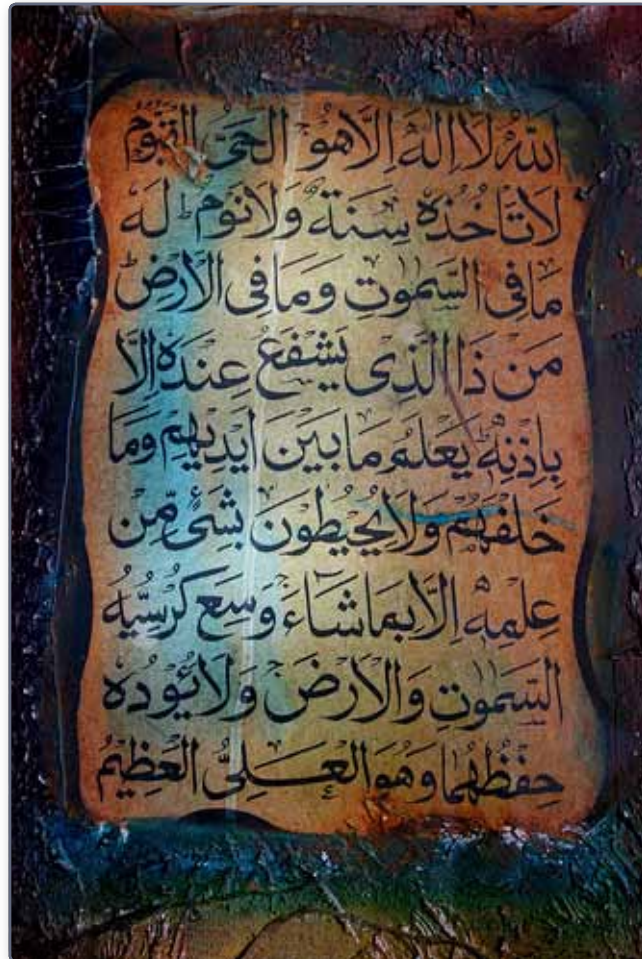 اَللّٰهُ لَا اِلٰهَ اِلَّا هُوَ اَلْحَیُّ الْقَیُّوْمُ
لَا تَاْخُذُهٗ سِنَةٌ وَّلَا نَوْمٌ ؕ لَهٗ
مَا فِی السَّمٰوٰتِ وَمَا فِی الْاَرْضِ ؕ
مَنْ ذَا الَّذِیْ یَشْفَعُ عِنْدَهٗۤ اِلَّا
بِاِذْنِهٖ ؕ یَعْلَمُ مَا بَیْنَ اَیْدِیْهِمْ وَمَا
خَلْفَهُمْ وَلَا یُحِیْطُوْنَ بِشَیْءٍ مِّنْ
عِلْمِهٖۤ اِلَّا بِمَا شَآءَ وَسِعَ كُرْسِیُّهُ
السَّمٰوٰتِ وَالْاَرْضَ وَلَا یَـُٔوْدُهٗ
حِفْظُهُمَا وَهُوَ الْعَلِیُّ الْعَظِیْمُ